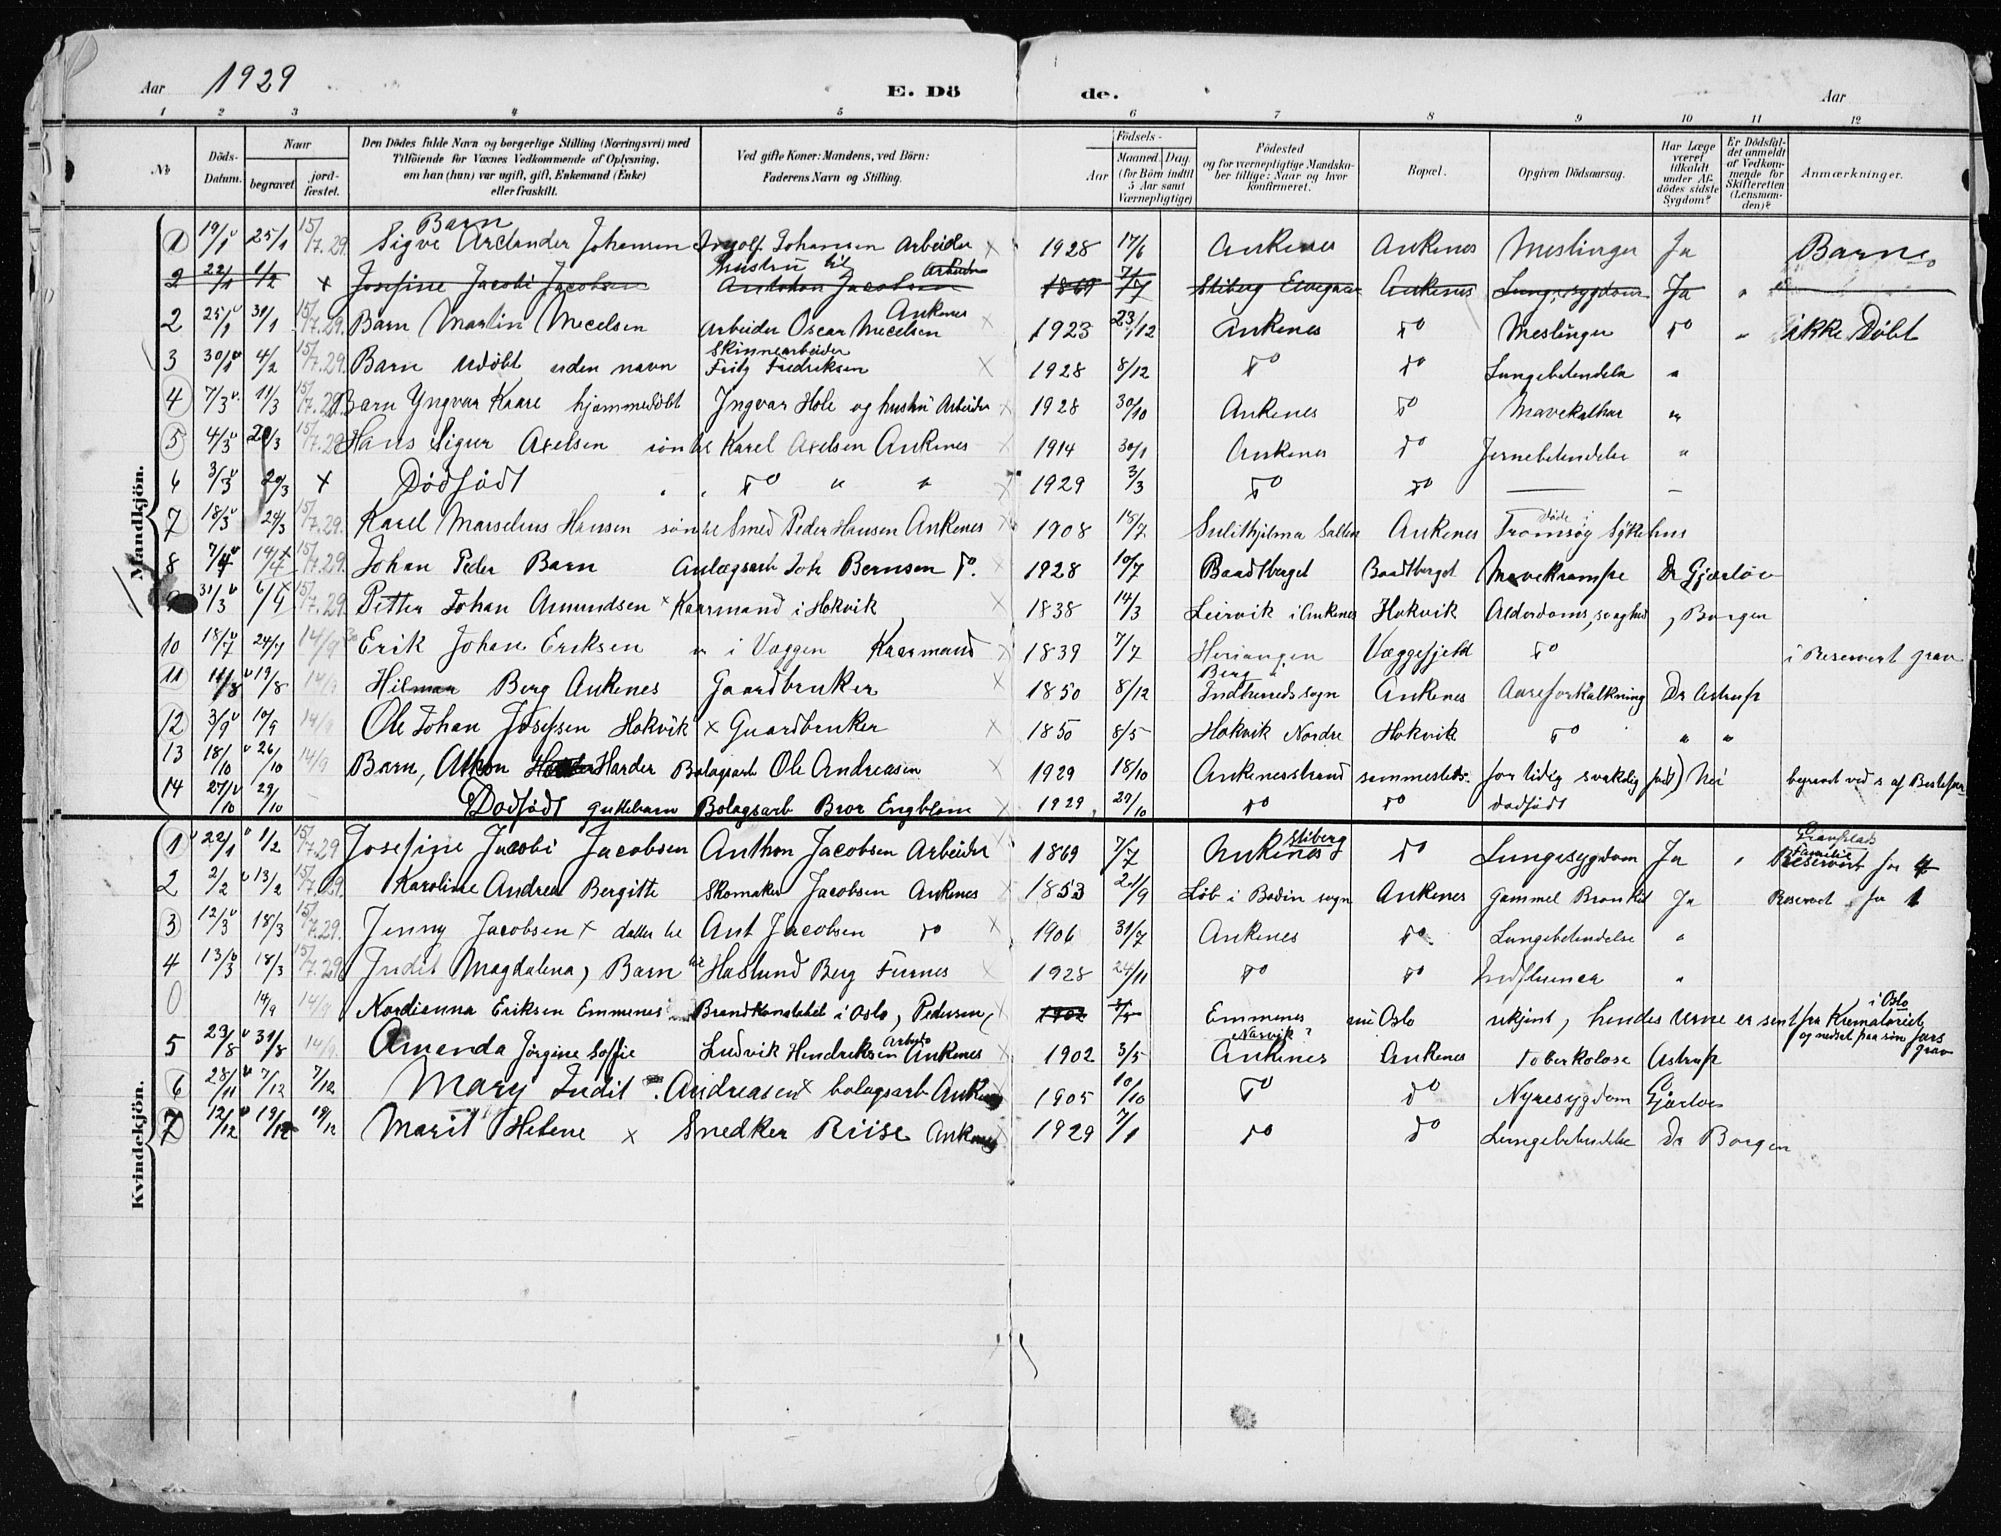 Aar 1929 E. Dö de. Aar
1 2 3 4 5 6 7 8 9 10 11 12
No Döds-Datum. Naar begravet. jord-fæstet. Den Dödes fulde Navn og borgerlige Stilling (Næringsvei) med Tilföiende for Voxnes Vedkommende af Oplysning, om han (hun) var ugift, gift, Enkemand (Enke) eller fraskilt. Ved gifte Koner: Mandens, ved Börn: Faderens Navn og Stilling. Födsels- Aar Maaned. Dag. (for Börn indtil 5 Aar samt Værnepligtige) Födested og for værnepligtige Mandskaber tillige: Naar og hvor konfirmeret. Bopæl. Opgiven Dödsaarsag. Har Læge været tilkaldt under Afdödes sidste Sygdom? Er Dödsfaldet anmeldt af Vedkommende for Skifteretten (Lensmanden)? Anmærkninger.
Mandkjön.
1 19/1 25/1 15/7.29 Barn Sigve Johansen Ingolf Johansen Arbeider 1928 17/6 Ankenes Ankenes Meslinger Ja Barn
2 22/1 1/2 x Josefine Jacobi Jacobsen hustru til Anthon Jacobsen Arbeider 1869 7/7 Stiberg Ankenes Lungesygdom Ja "
2 25/1 31/1 15/7.29. Barn Martin Mecelsen Arbeider Oscar Mecelsen Ankenes 1923 23/12 Ankenes Do Meslinger Do " ikke Döbt
3 30/1 4/2 15/7.29. Barn udöbt uden navn Skinnearbeider Fritz Fredriksen 1928 8/12 Do Do Lungebetendelse "
4 7/3 11/3 15/7.29 Barn Yngvar Kaare hjemmedöbt Ingvar Hole og hustru Arbeider 1928 30/10 Ankenes Do Mavekathar "
5 4/3 20/3 15/7.29 Hans Sigur Axelsen sön til Karel Axelsen Ankenes 1914 30/1 Ankenes Do Jernebetendelse "
6 3/3 20/3 x Dödfödt Do " " 1929 3/3 Do Do — –
7 18/3 24/3 15/7.29. Karel Marselius Hansen sön til Smed Peder Hansen Ankenes 1908 18/7 Sulithjelma Salten Ankenes Döde i Tromsöy Sykehus
8 7/4 14/4 15/7.29. Johan Peder Barn Anlægsarb Joh Bernsen Do. 1928 10/7 Baadsberget Baadtberget Mavekrampe Dr Gjærlöv
9 31/3 6/4 15/7.29. Petter Johan Amundsen x Kaarmand i Hokvik 1838 14/3 Leirvik i Ankenes Hokvik Alderdoms,svaghed , Borgen
10 18/7 24/7 14/9 Erik Johan Eriksen " i Væggen Kaarmand 1839 7/7 Herjangen Væggefjeld Do i Reservert grav
11 11/8 19/8 14/9 Hilmar Berg Ankenes Gaardbruker 1850 8/12 Berg i Indherreds sogn Ankenes Aareforkalkning Dr Astrup
12 3/9 10/9 14/9 Ole Johan Josefsen Hokvik x Gaardbruker 1850 8/5 Hokvik Nordre Hokvik Do " "
13 18/10 26/10 14/9 Barn, Harder Bolagsarb Ole Andreasen 1929 18/10 Ankenesstrand sammesteds. for tidlig svakelig födt) Nei begravet ved s af Bestefar
14 27/10 29/10 – Dödfödt guttebarn Bolagsarb Bror Engblom 1929 27/10 Do Do dödfödt
Kvindekjön.
1 22/1 1/2 15/7.29 Josefine Jacobi Jacobsen Anthon Jacobsen Arbeider 1869 7/7 Ankenes Stiberg Do Lungesygdom Ja " Gravplads Familie Reservert for 4
2 2/2 13/2 15/7.29. Karoline Andrea Bergitte Skomaker Jacobsen Ankenes 1853 Löb i Bodin sogn Ankenes Gammel Bronkit Ja Reservert for 1
3 12/3 18/3 15/7.29. Jenny Jacobsen x datter til Ant Jacobsen Do 1906 31/7 Ankenes Do. Lungebetendelse "
4 13/3 18/3 15/7.29. Judit Magdalena, Barn til Haslund Berg Furnes 1928 24/11 Do Do Influensa "
0 14/9 14/9 Nordianna Eriksen Emmenes Brandkonstabel i Oslo, Pedersen, 1902 3/5 Emmenes Oslo ukjent, hendes Urne er sent fra Krematoriet i Oslo og nedsat paa sön fars grav
5 23/8 31/8 14/9. Amanda Jörgine Soffie Ludvik Hendriksen Arbeid Ankenes 1902 3/5 Narvik? Ankenes Ankenes Toberkolose Astrup
6 28/11 7/12 7/12 Mary Judit Andreasen x bolagsarb Ankenes 1905 10/10 Do Do Nyresygdom Gjærlöv
7 12/12 19/12 19/12 Marit Helene x Snedker Riise Ankenes 1929 7/1 Do Do Lungebetendelse Dr Borgen